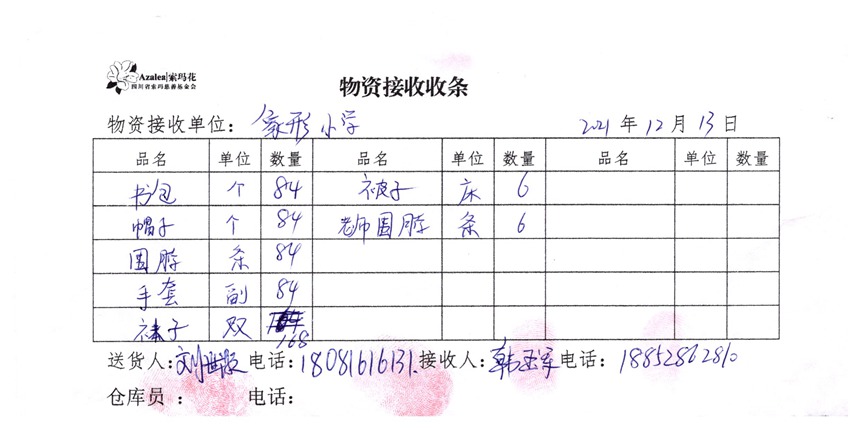 Azalea|索玛花
四川省索玛慈善基金会
物资接收收条
物资接收单位: 象形小学 2021年12月13日
品名 单位 数量 品名 单位 数量 品名 单位 数量
书包 个 84 被子 床 6
帽子 个 84 老师围脖 条 6
围脖 条 84
手套 副 84
袜子 双 168
送货人: 刘 电话: 18081616131. 接收人: 韩 军 电话: 18852862810
仓库员 : 电话: